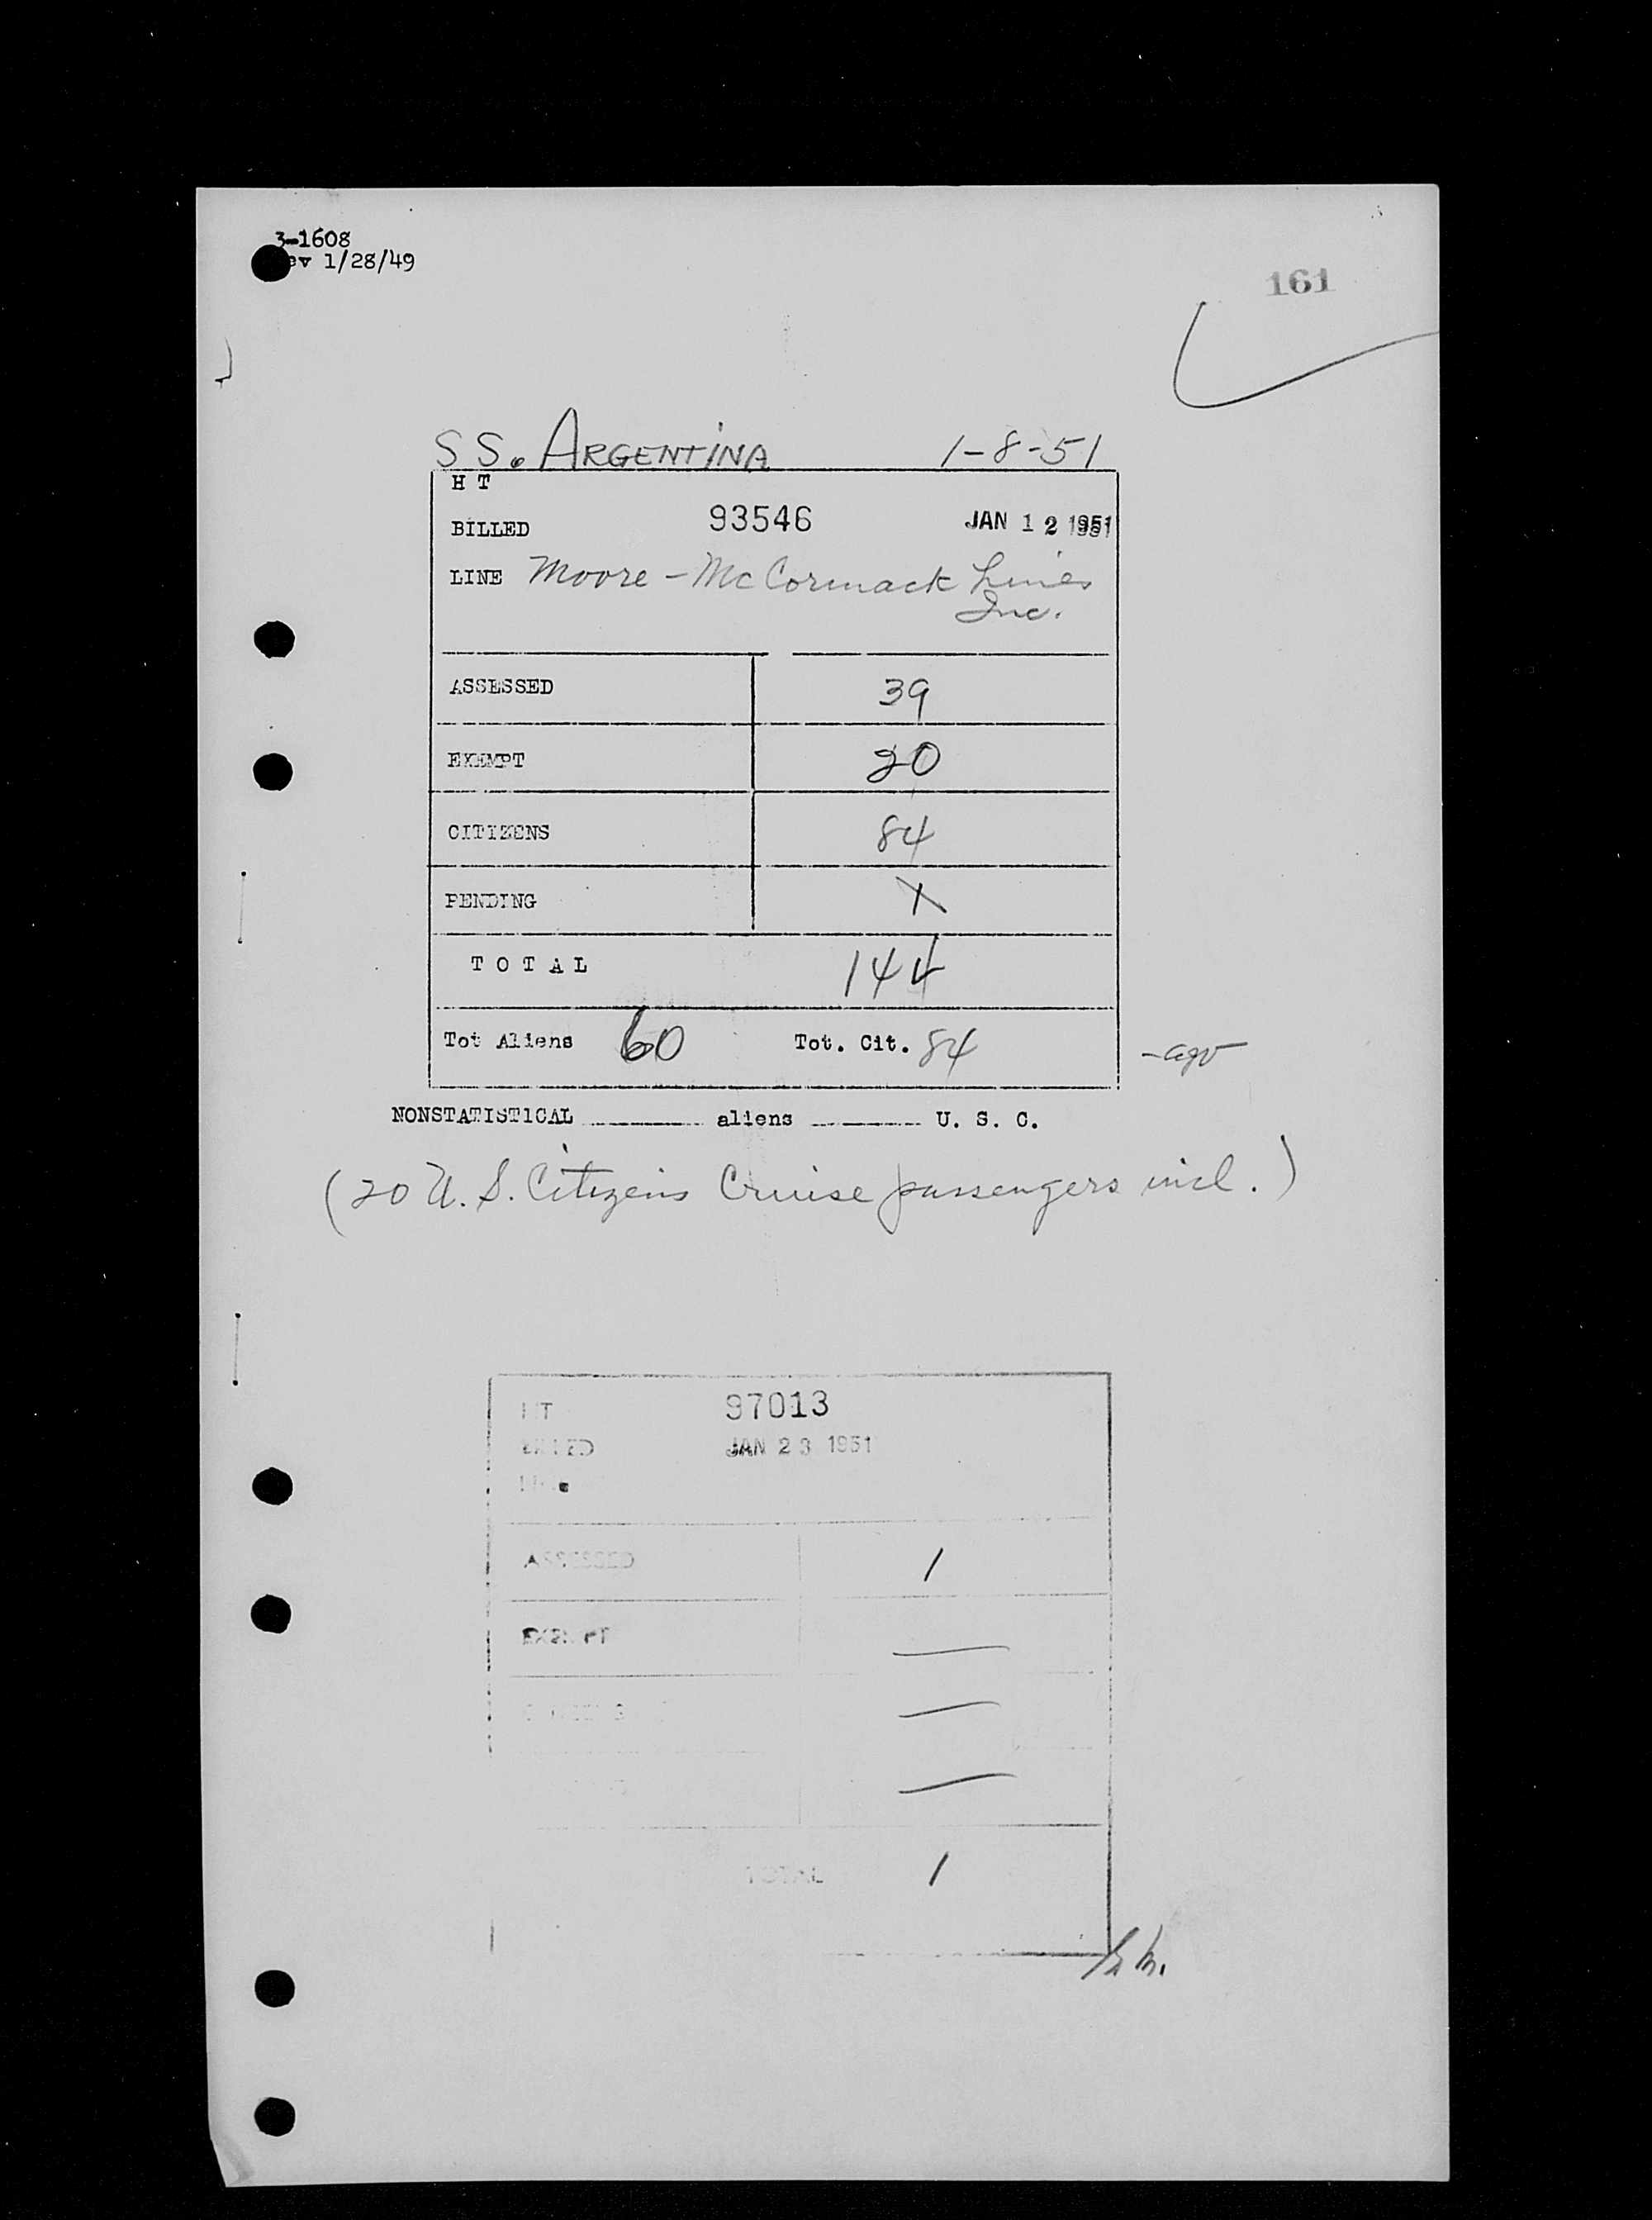 3-1608
ev 1/28/49
161
SS. ARGENTINA 1-8-51
H T
BILLED 93546 JAN 12 1951
LINE Moore-McCormack Lines
Inc.
ASSESSED 39
EXEMPT 20
CITIZENS 84
PENDING X
TOTAL 144
Tot Aliens 60 Tot. Cit. 84
NONSTATISTICAL aliens U. S. C.
(20 U.S. Citizens Cruise passengers incl.)
HT 97013
BILLED JAN 23 1951
LINE
ASSESSED 1
EXEMPT —
CITIZENS —
—
TOTAL 1